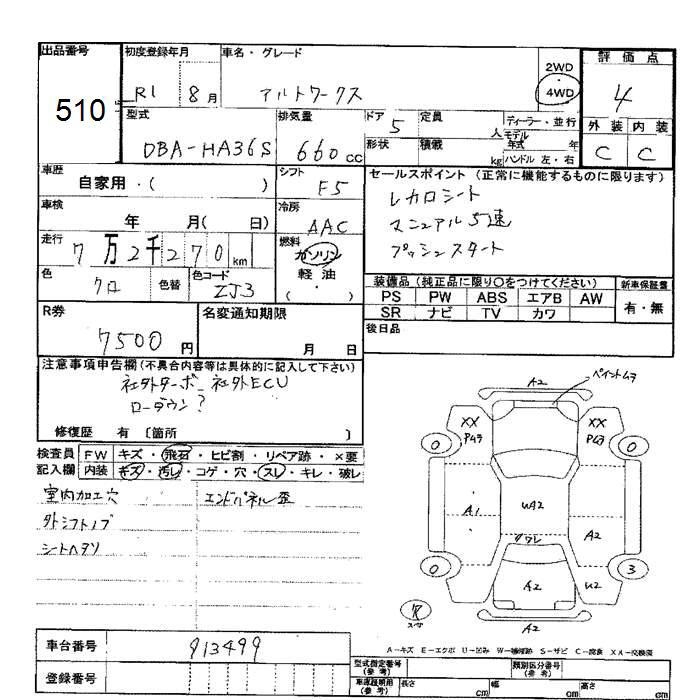 出品番号
510
初度登録年月
R1 8月
車名・グレード
アルトワークス
2WD
4WD
評価点
4
型式
DBA-HA36S
排気量
660cc
ドア
5
定員
人
ディーラー・並行
モデル
年式 年
形状
積載
kg
ハンドル 左・右
外装 内装
C C
車歴
自家用・( )
シフト
F5
セールスポイント(正常に機能するものに限ります)
レカロシート
マニュアル5速
プッシュスタート
車検
年 月( 日)
冷房
AAC
走行
7万2千270km
燃料
ガソリン
軽油
( )
色
クロ
色替
色コード
ZJ3
装備品(純正品に限り○をつけてください)
新車保証書
PS PW ABS エアB AW
SR ナビ TV カワ
有・無
R券
7500円
名変通知期限
月 日
後日品
注意事項申告欄(不具合内容等は具体的に記入して下さい)
社外ターボ 社外ECU
ローダウン?
修復歴 有〔箇所 〕
検査員
記入欄
FW キズ・飛石・ヒビ割・リペア跡・×要
内装 キズ・汚レ・コゲ・穴・スレ・キレ・破レ
室内加工穴
エンドパネル歪
外シフトノブ
シートヘタリ
A2
ペイントムラ
XX
XX
0
0
A1
UA2
A2
ワレ
0
3
A2
U2
A2
A-キズ E-エクボ U-凹み W-補修跡 S-サビ C-腐食 XX-交換済
車台番号
913499
登録番号
型式指定番号
(参考)
類別区分番号
(参考)
車庫証明用
(参考)
長さ cm
幅 cm
高さ cm